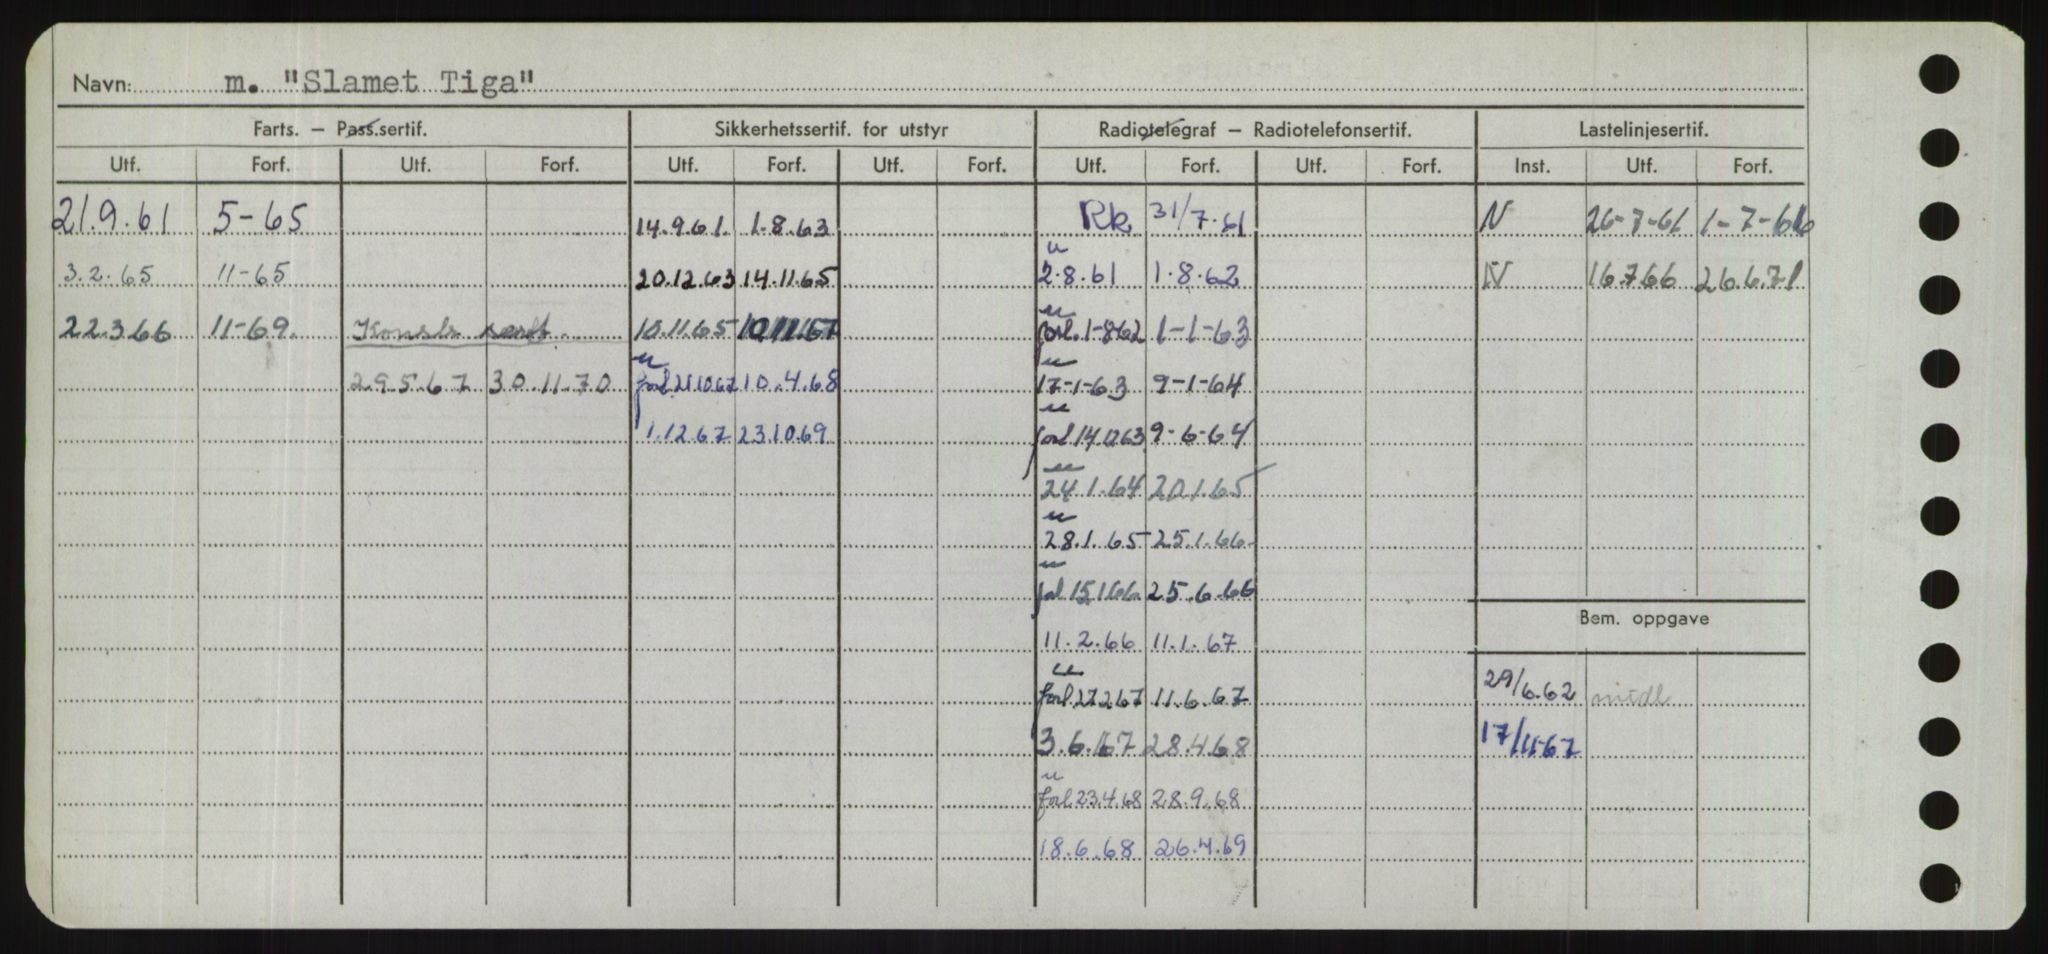 Navn: m. "Slamet Tiga"
Farts. – Pass.sertif. Sikkerhetssertif. for utstyr Radiotelegraf – Radiotelefonsertif. Lastelinjesertif.
Utf. Forf. Utf. Forf. Utf. Forf. Utf. Forf. Utf. Forf. Utf. Forf. Inst. Utf. Forf.
21.9.61 5-65 14.9.61. 1.8.63 Rk 31/7.61 N 26-7-61 1-7-66
3.2.65 11-65 20.12.63 14.11.65 u 2.8.61 1.8.62 N 16.7.66 26.6.71
22.3.66 11-69. Konstr. sert. 10.11.65 10.11.67 u forl. 1-8-62 1-1-63
29.5.67 30.11.70 u forl 21.10.67 10.4.68 u 17-1-63 9-1-64
1.12.67 23.10.69 u forl 14.12.63 9-6-64
u 24.1.64 20.1.65
u 28.1.65 25.1.66
u forl 15.1.66 25.6.66
Bem. oppgave
11.2.66 11.1.67
u forl 27.2.67 11.6.67 29/6.62 midl
3.6.67 28.4.68 17/11-67
u forl 23.4.68 28.9.68
18.6.68 26.4.69